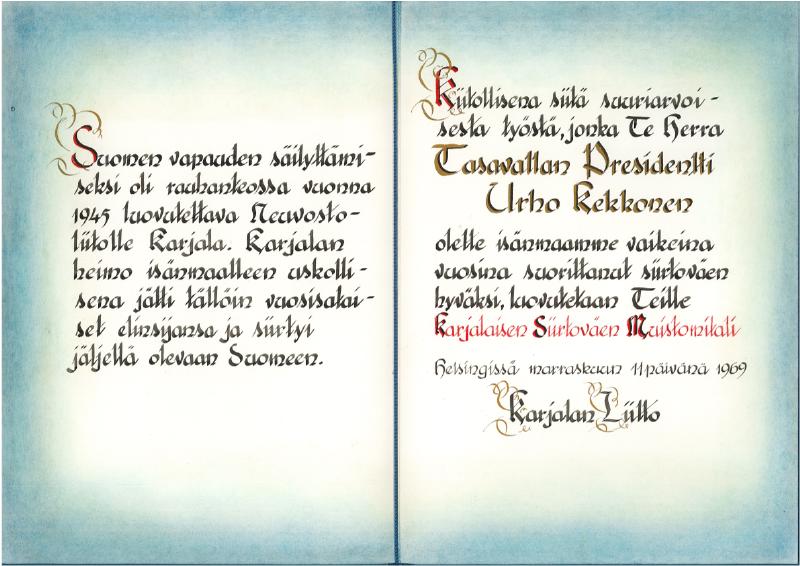 Suomen vapauden säilyttämi-
seksi oli rauhanteossa vuonna
1945 luovutettava Neuvosto-
liitolle Karjala. Karjalan
heimo isänmaalleen uskolli-
sena jätti tällöin vuosisatai-
set elinsijansa ja siirtyi
jäljellä olevaan Suomeen.
Kiitollisena siitä suuriarvoi-
sesta työstä, jonka Te Herra
Tasavallan Presidentti
Urho Kekkonen
olette isänmaamme vaikeina
vuosina suorittanut siirtoväen
hyväksi, luovutetaan Teille
Karjalaisen Siirtoväen Muistomitali
Helsingissä marraskuun 11 päivänä 1969
Karjalan Liitto